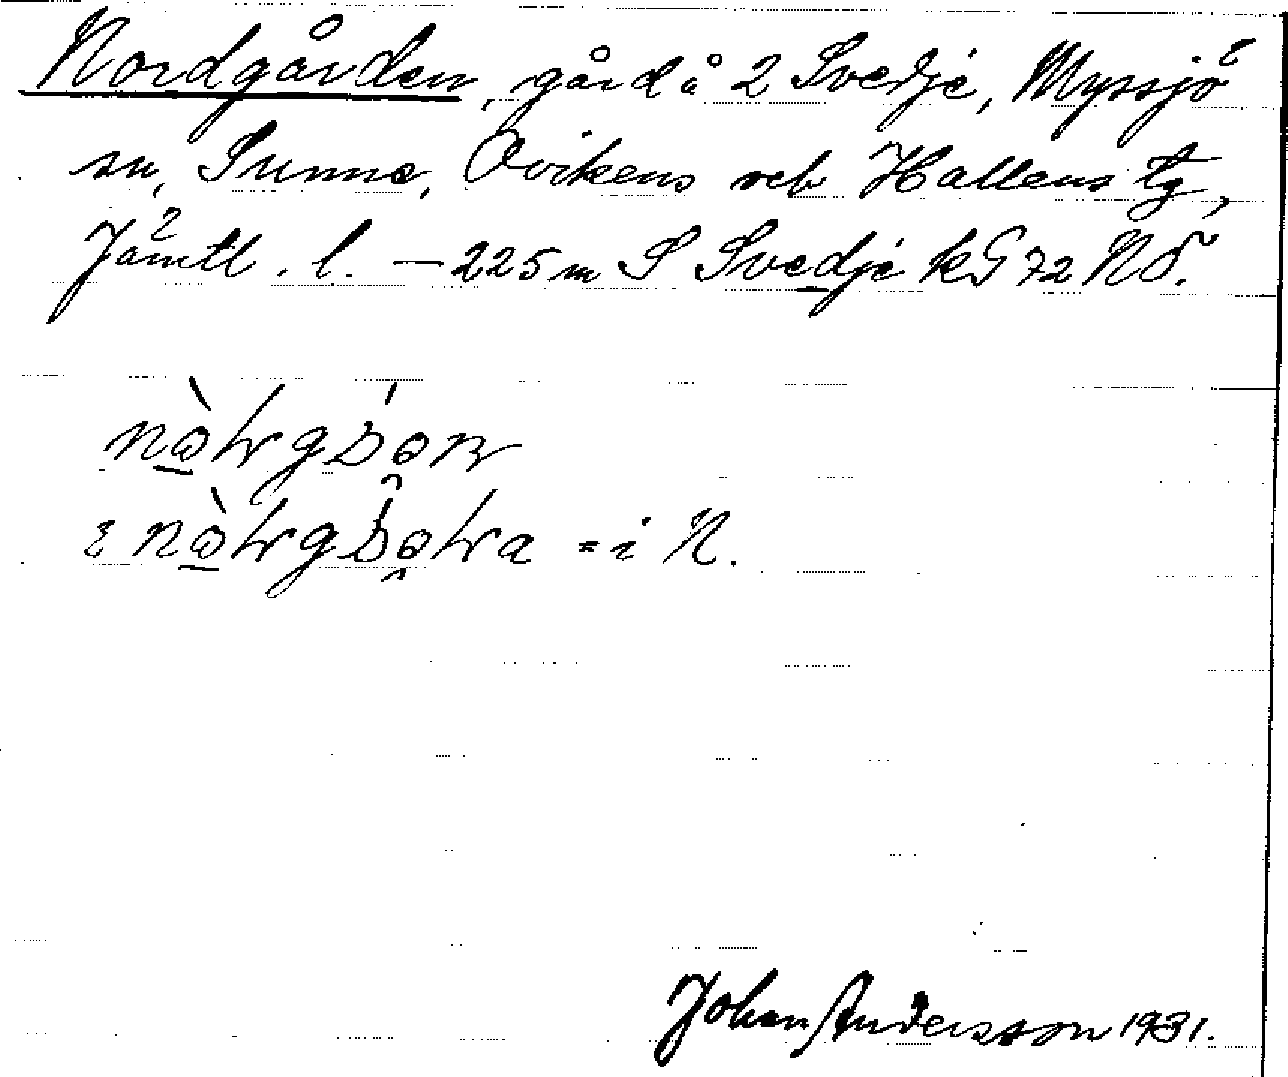 Nordgården, gård å 2 Svedje, Myssjö
sn, Sunne, Ovikens och Hallens tg,
Jämtl. l. – 225 m S Svedje kG 72 NÖ.
= i N.
Johan Andersson 1931.